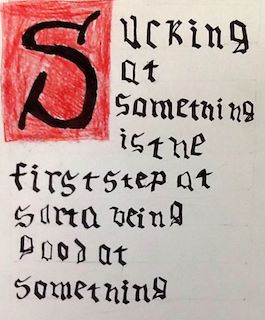 Sucking
at
something
is the
first step at
sorta being
good at
something